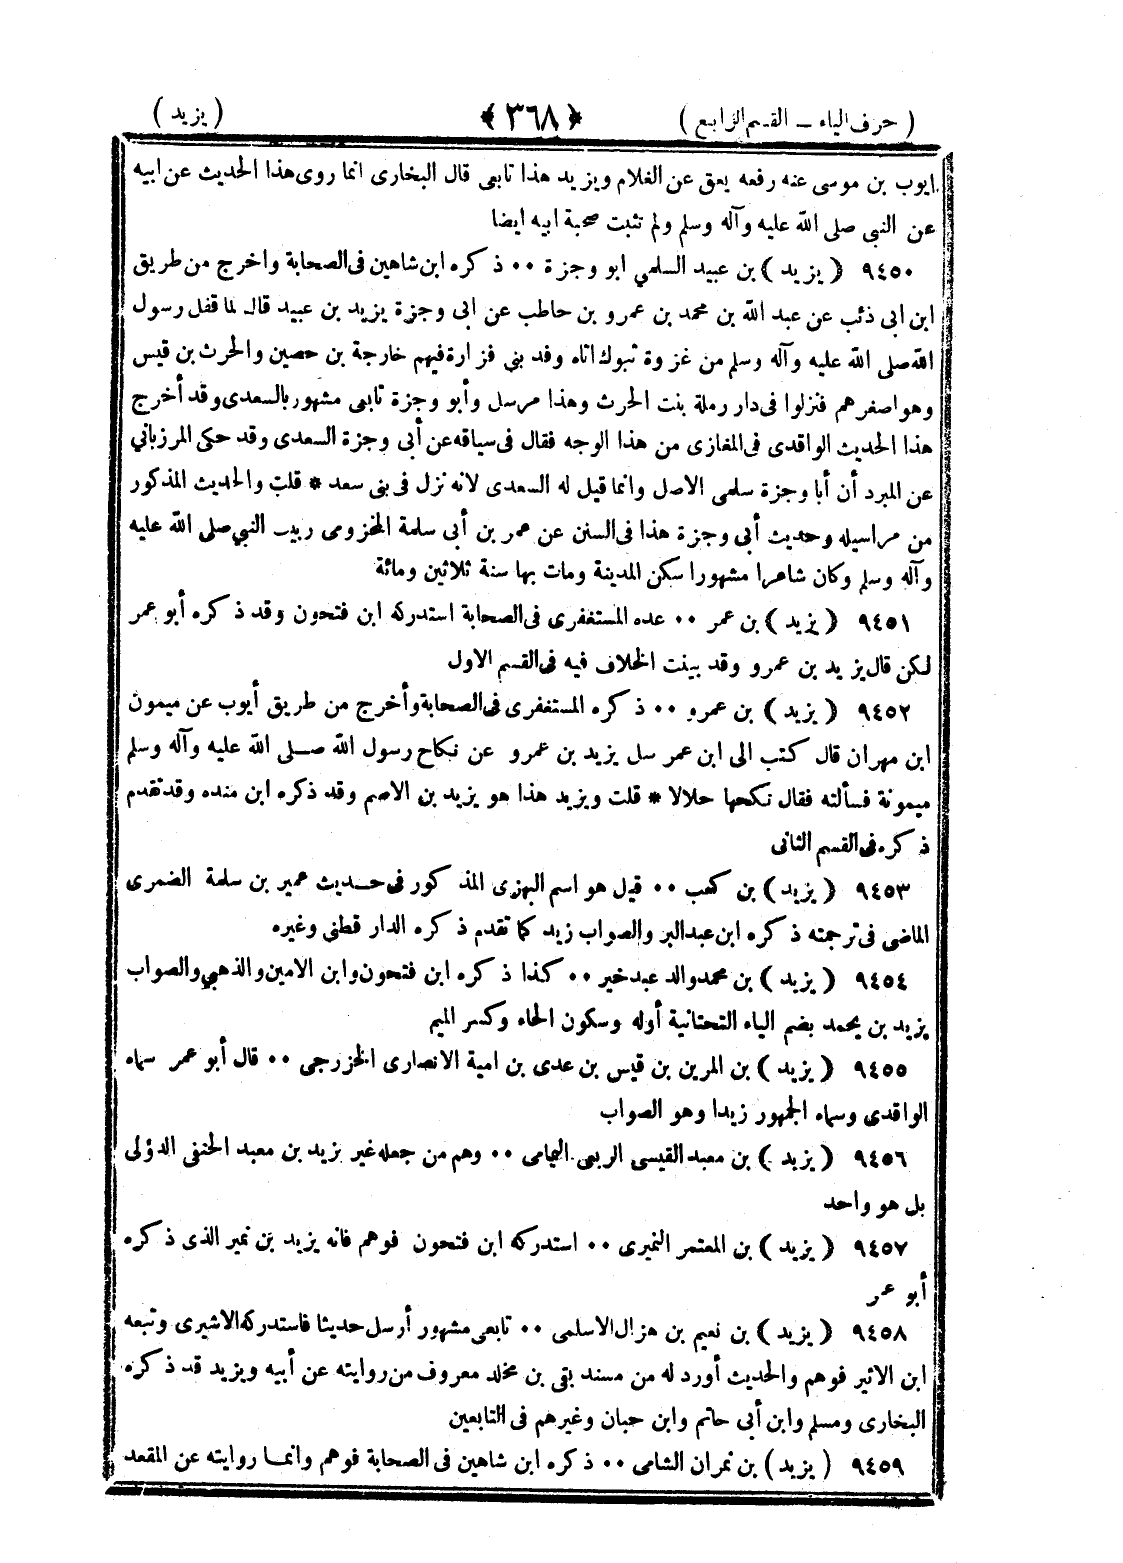 ( حرف الياء – القسم الرابع ) ﴿ ٣٦٨ ﴾ ( يزيد )
ايوب بن موسى عنه رفعه يعق عن الغلام ويزيد هذا تابعى قال البخارى انما روى هذا الحديث عن ابيه
عن النبى صلى الله عليه وآله وسلم ولم تثبت صحبة ابيه ايضا
٩٤٥٠ ( يزيد ) بن عبيد السلمي ابو وجزة ٠٠ ذكره ابن شاهين فى الصحابة واخرج من طريق
ابن ابى ذئب عن عبد الله بن محمد بن عمرو بن حاطب عن ابى وجزة يزيد بن عبيد قال لما قفل رسول
الله صلى الله عليه وآله وسلم من غزوة تبوك اتاه وفد بني فزارة فيهم خارجة بن حصين والحرث بن قيس
وهو اصغرهم فنزلوا فى دار رملة بنت الحرث وهذا مرسل وأبو وجزة تابعى مشهور بالسعدى وقد أخرج
هذا الحديث الواقدى فى المغازى من هذا الوجه فقال فى سياقه عن أبى وجزة السعدى وقد حكى المرزباني
عن المبرد أن أبا وجزة سلمى الاصل وانما قيل له السعدى لانه نزل فى بنى سعد * قلت والحديث المذكور
من مراسيله وحديث أبى وجزة هذا فى السنن عن عمر بن أبى سلمة المخزومى ربيب النبي صلى الله عليه
وآله وسلم وكان شاعرا مشهورا سكن المدينة ومات بها سنة ثلاثين ومائة
٩٤٥١ ( يزيد ) بن عمر ٠٠ عده المستغفرى فى الصحابة استدركه ابن فتحون وقد ذكره أبو عمر
لكن قال يزيد بن عمرو وقد بينت الخلاف فيه فى القسم الاول
٩٤٥٢ ( يزيد ) بن عمرو ٠٠ ذكره المستغفرى فى الصحابة وأخرج من طريق أيوب عن ميمون
ابن مهران قال كتب الى ابن عمر سل يزيد بن عمرو عن نكاح رسول الله صلى الله عليه وآله وسلم
ميمونة فسألته فقال نكحها حلالا * قلت ويزيد هذا هو يزيد بن الاصم وقد ذكره ابن منده وقد تقدم
ذكره فى القسم الثانى
٩٤٥٣ ( يزيد ) بن كعب ٠٠ قيل هو اسم البهزى المذكور فى حديث عمير بن سلمة الضمرى
الماضى فى ترجمته ذكره ابن عبد البر والصواب زيد كما تقدم ذكره الدار قطنى وغيره
٩٤٥٤ ( يزيد ) بن محمد والد عبد خير ٠٠ كذا ذكره ابن فتحون وابن الامين والذهبي والصواب
يزيد بن يحمد بضم الياء التحتانية أوله وسكون الحاء وكسر الميم
٩٤٥٥ ( يزيد ) بن المرين بن قيس بن عدى بن امية الانصارى الخزرجى ٠٠ قال أبو عمر سماه
الواقدى وسماه الجمهور زيدا وهو الصواب
٩٤٥٦ ( يزيد ) بن معبد القيسى الربعى اليمامى ٠٠ وهم من جعله غير يزيد بن معبد الحنفى الدؤلى
بل هو واحد
٩٤٥٧ ( يزيد ) بن المعتمر النميرى ٠٠ استدركه ابن فتحون فوهم فانه يزيد بن نمير الذى ذكره
أبو عمر
٩٤٥٨ ( يزيد ) بن نعيم بن هزال الاسلمى ٠٠ تابعى مشهور أرسل حديثا فاستدركه الاشيرى وتبعه
ابن الاثير فوهم والحديث أورد له من مسند بقى بن مخلد معروف من روايته عن أبيه ويزيد قد ذكره
البخارى ومسلم وابن أبى حاتم وابن حبان وغيرهم فى التابعين
٩٤٥٩ ( يزيد ) بن نمران الشامى ٠٠ ذكره ابن شاهين فى الصحابة فوهم وانما روايته عن المقعد